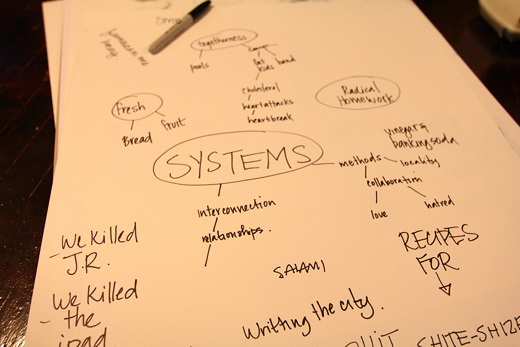 togetherness
pools
fat
kids band
heartattacks
heartbreak
Radical
Homework
fresh
Bread
fruit
SYSTEMS
methods
vinegar &
banking soda
locality
collaboration
love
hatred
interconnection
relationships.
- We Killed
J.R.
We Killed
- the
ipad
SALAMI
Writting the city.
RECIPES
FOR